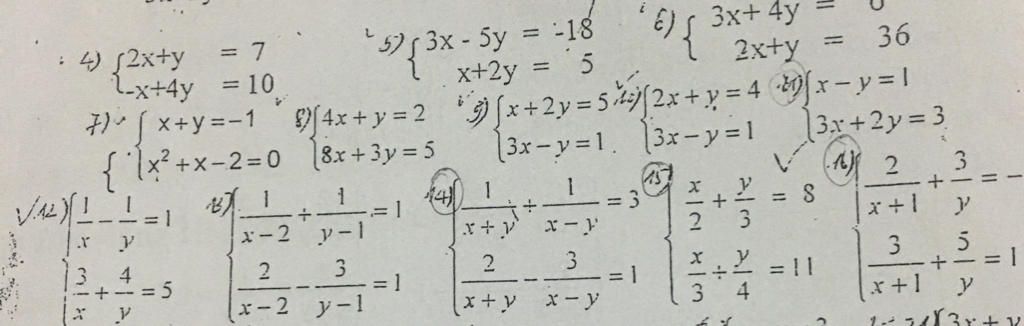 4) {2x+y = 7
-x+4y = 10
5) {3x - 5y = -18
x+2y = 5
6) {3x+ 4y =
2x+y = 36
7) {x+y=-1
x²+x-2=0
8) {4x+y=2
8x+3y=5
9) {x+2y=5
3x-y=1.
{2x+y=4
3x-y=1
{x-y=1
3x+2y=3
12) {1/x - 1/y =1
3/x + 4/y =5
13) {1/(x-2) + 1/(y-1) =1
2/(x-2) - 3/(y-1) =1
14) {1/(x+y) + 1/(x-y) =3
2/(x+y) - 3/(x-y) =1
15 {x/2 + y/3 = 8
x/3 + y/4 =11
16) {2/(x+1) + 3/y =-
3/(x+1) + 5/y =1
{3x+y